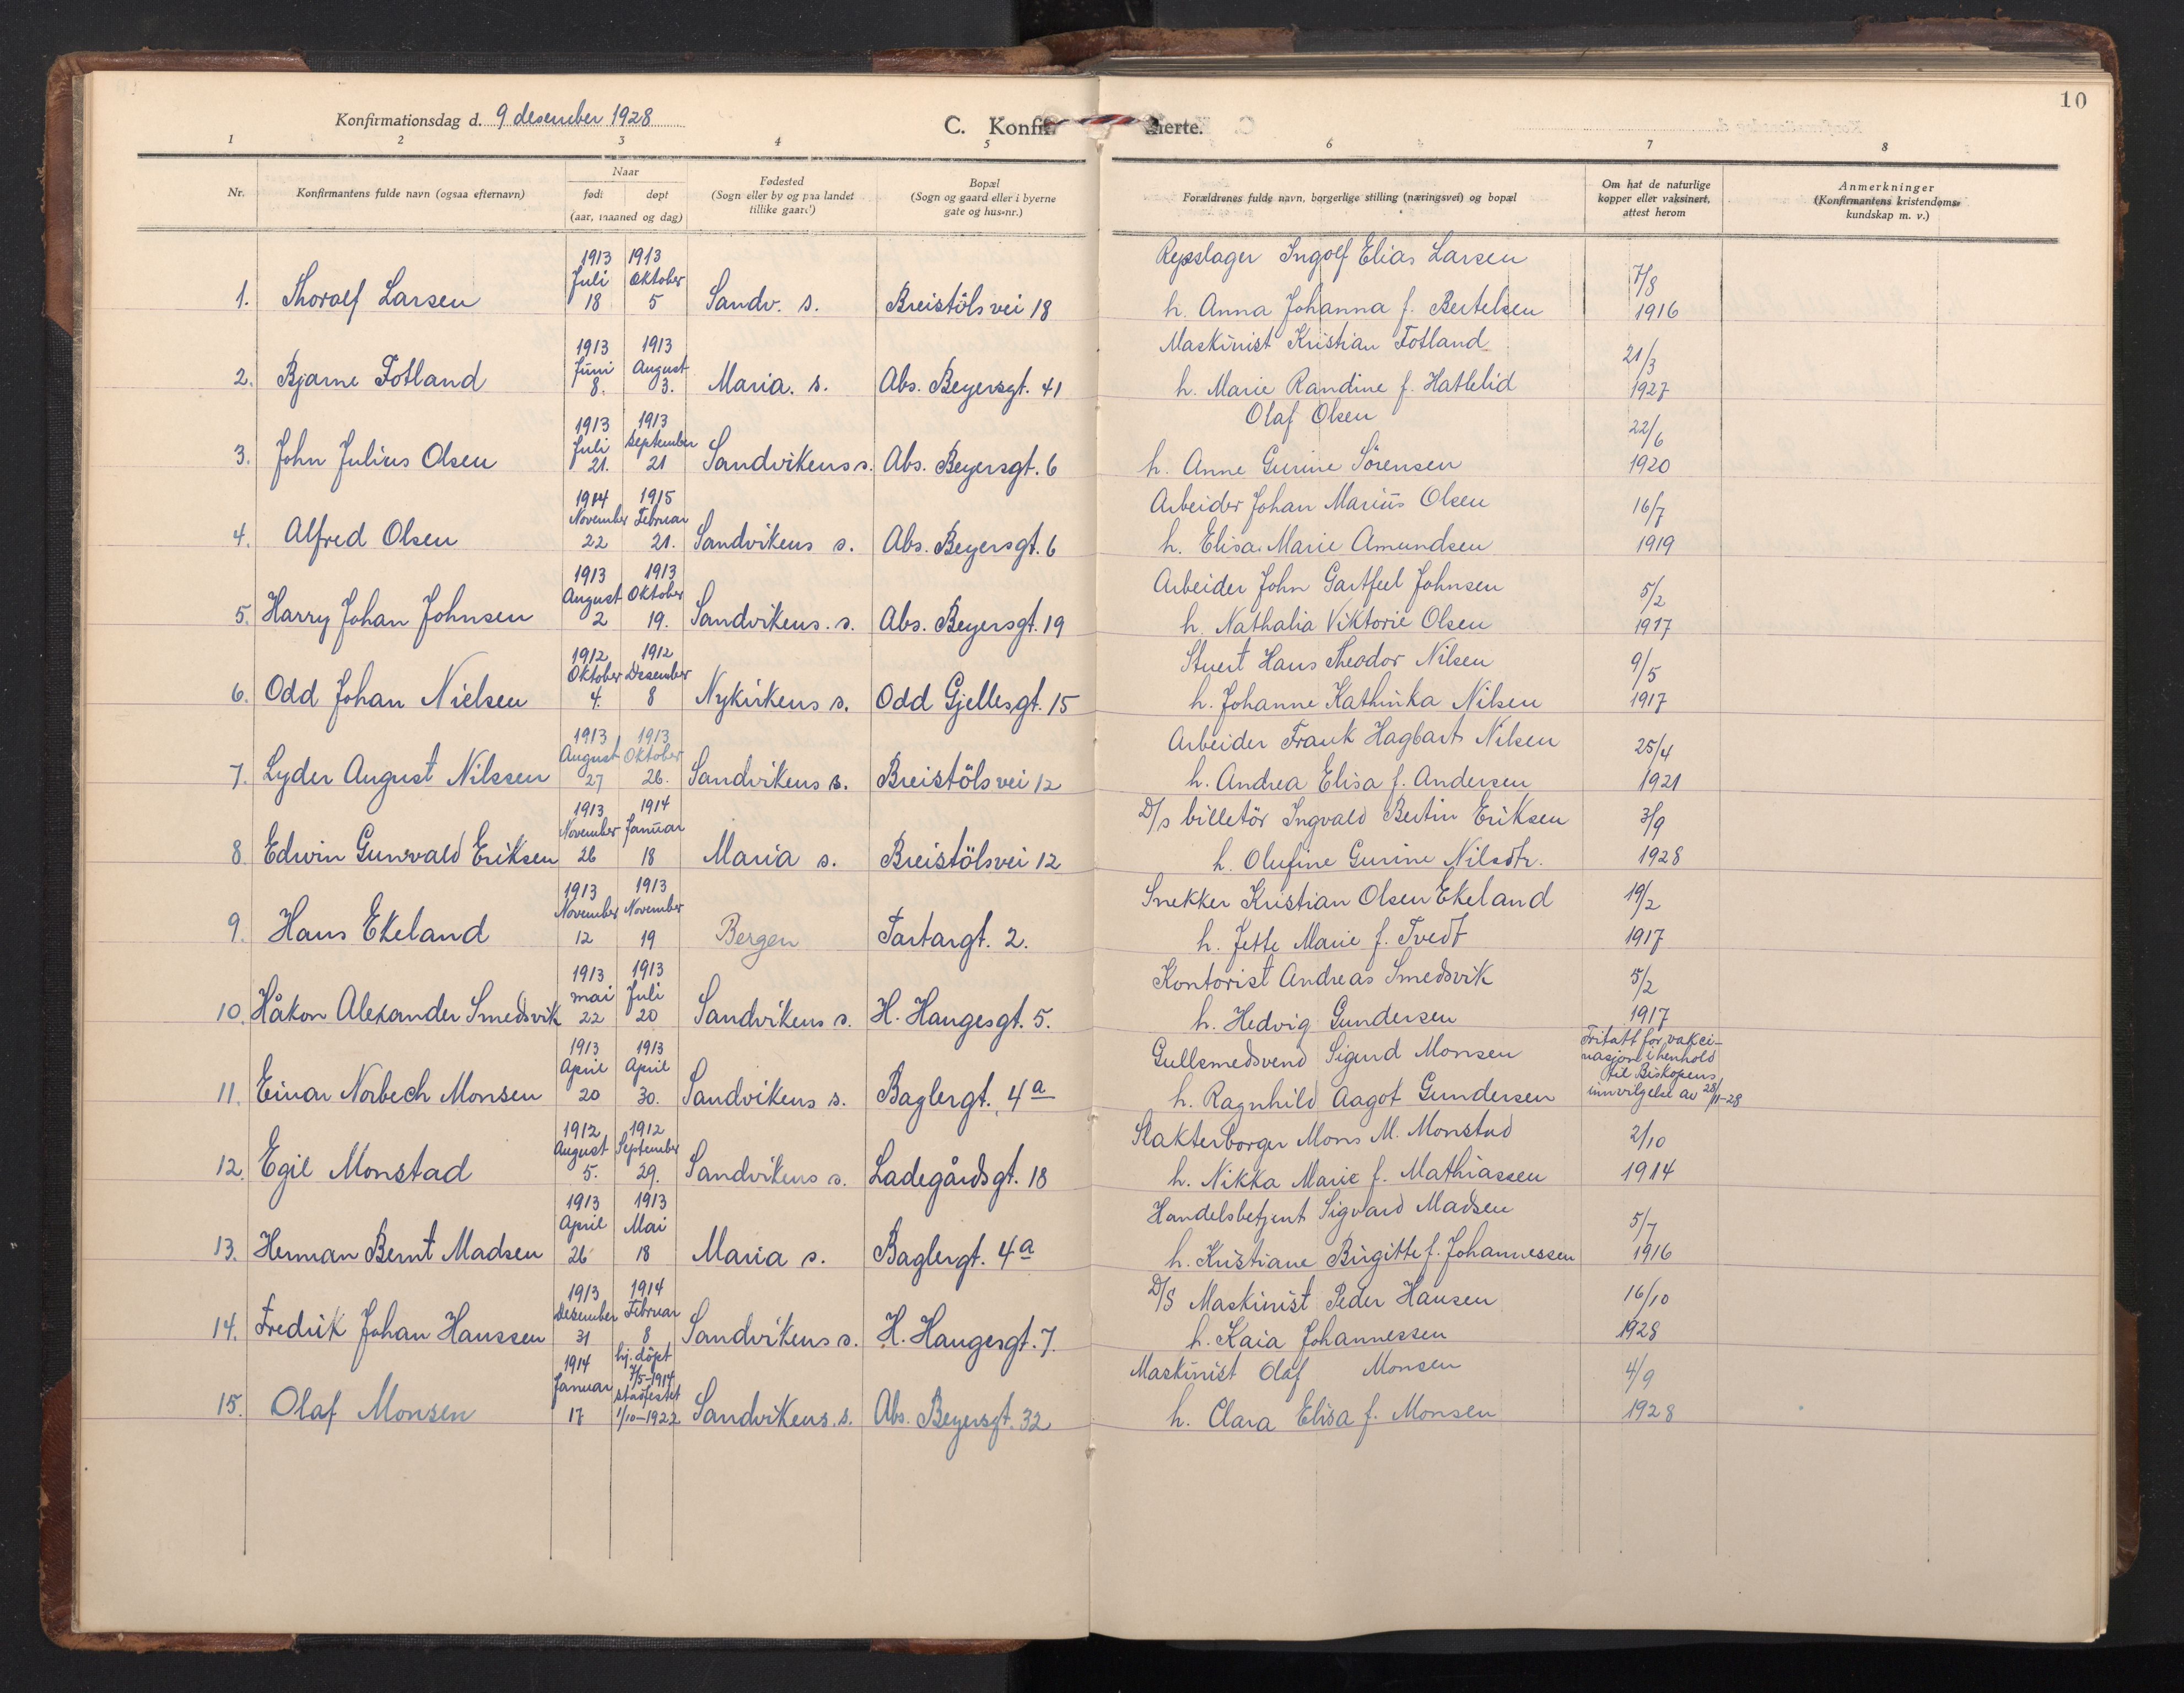 10
Konfirmationsdag d. 9 desember 1928
C. Konfir
merte.
1 2 3 4 5 6 7 8
Nr.
Konfirmantens fulde navn (ogsaa efternavn)
Naar
født døpt
(aar, maaned og dag)
Fødested
(Sogn eller by og paa landet
tillike gaard)
Bopæl
(Sogn og gaard eller i byerne
gate og hus-nr.)
Forældrenes fulde navn, borgerlige stilling (næringsvei) og bopæl
Om hat de naturlige
kopper eller vaksinert,
attest herom
Anmerkninger
(Konfirmantens kristendoms-
kundskap m. v.)
1913 1913 Repslager Ingolf Elias Larsen
Juli Oktober 7/8
1. Thoralf Larsen 18 5 Sandv. s. Breistöls vei 18 h. Anna Johanna f. Bertelsen 1916
1913 1913 Maskinist Kristian Fotland
Juni August 21/3
2. Bjarne Fotland 8. 3. Maria. s. Abs. Beyersgt. 41 h. Marie Randine f. Hatlelid 1927
1913 1913 Olaf Olsen
Juli September 22/6
3. John Julius Olsen 21. 21 Sandvikens s. Abs. Beyersgt. 6 h. Anne Gurine Sörensen 1920
1914 1915 Arbeider Johan Marius Olsen
November Februar 16/7
4. Alfred Olsen 22 21. Sandvikens s. Abs. Beyersgt. 6 h. Elisa Marie Amundsen 1919
1913 1913 Arbeider John Gartfeel Johnsen
August Oktober 5/2
5. Harry Johan Johnsen 2 19. Sandvikens. s. Abs. Beyersgt. 19 h. Nathalia Viktorie Olsen 1917
1912 1912 Stuert Hans Theodor Nilsen
Oktober Desember 9/5
6. Odd Johan Nielsen 4. 8 Nykirkens s. Odd Gjellesgt. 15 h. Johanne Kathinka Nilsen 1917
1913 1913 Arbeider Frank Hagbart Nilsen
August Oktober 25/4
7. Lyder August Nilssen 27 26. Sandvikens s. Breistöls vei 12 h. Andrea Elisa f. Andersen 1921
1913 1914 D/s billetör Ingvald Bertin Eriksen
November Januar 3/9
8. Edwin Gunvald Eriksen 26 18 Maria s. Breistölsvei 12 h. Olufine Gurine Nilsdtr. 1928
1913 1913 Snekker Kristian Olsen Ekeland
November November 19/2
9. Hans Ekeland 12 19 Bergen Tartargt. 2. h. Jette Marie f. Tvedt 1917
1913 1913 Kontorist Andreas Smedsvik
mai Juli 5/2
10. Håkon Alexander Smedsvik 22 20 Sandvikens s. H. Haugesgt. 5. h. Hedvig Gundersen 1917
1913 1913 Gullsmedsvend Sigurd Monsen Fritatt for vakci-
April April nasjon i henhold
til Biskopens
11. Einar Norbech Monsen 20 30. Sandvikens s. Baglergt. 4a h. Ragnhild Aagot Gundersen innvilgelse av 28/11-28
1912 1912 Slakterborger Mons M. Monstad
August September 2/10
12. Egil Monstad 5. 29. Sandvikens s. Ladegårdsgt. 18 h. Nikka Marie f. Mathiassen 1914
1913 1913 Handelsbetjent Sigvard Madsen
April Mai 5/7
13. Herman Bernt Madsen 26 18 Maria s. Baglergt. 4a h. Kristiane Birgitte f. Johannessen 1916
1913 1914 D/S Maskinist Peder Hansen
Desember Februar 16/10
14. Fredrik Johan Hanssen 31 8 Sandvikens s. H. Haugesgt. 7. h. Kaia Johannessen 1928
1914 hj. döpt Maskinist Olaf Monsen
Januar 7/5-1914 4/9
stadfestet
15. Olaf Monsen 17 1/10-1922 Sandvikens. s. Abs. Beyersgt. 32 h. Clara Elisa f. Monsen 1928